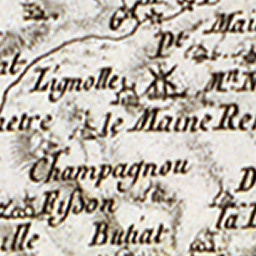 Gd
Pt Mai
Lignolle Mn N
etre le Maine Re
Champagnou
Fisson D
la
ille Butiat